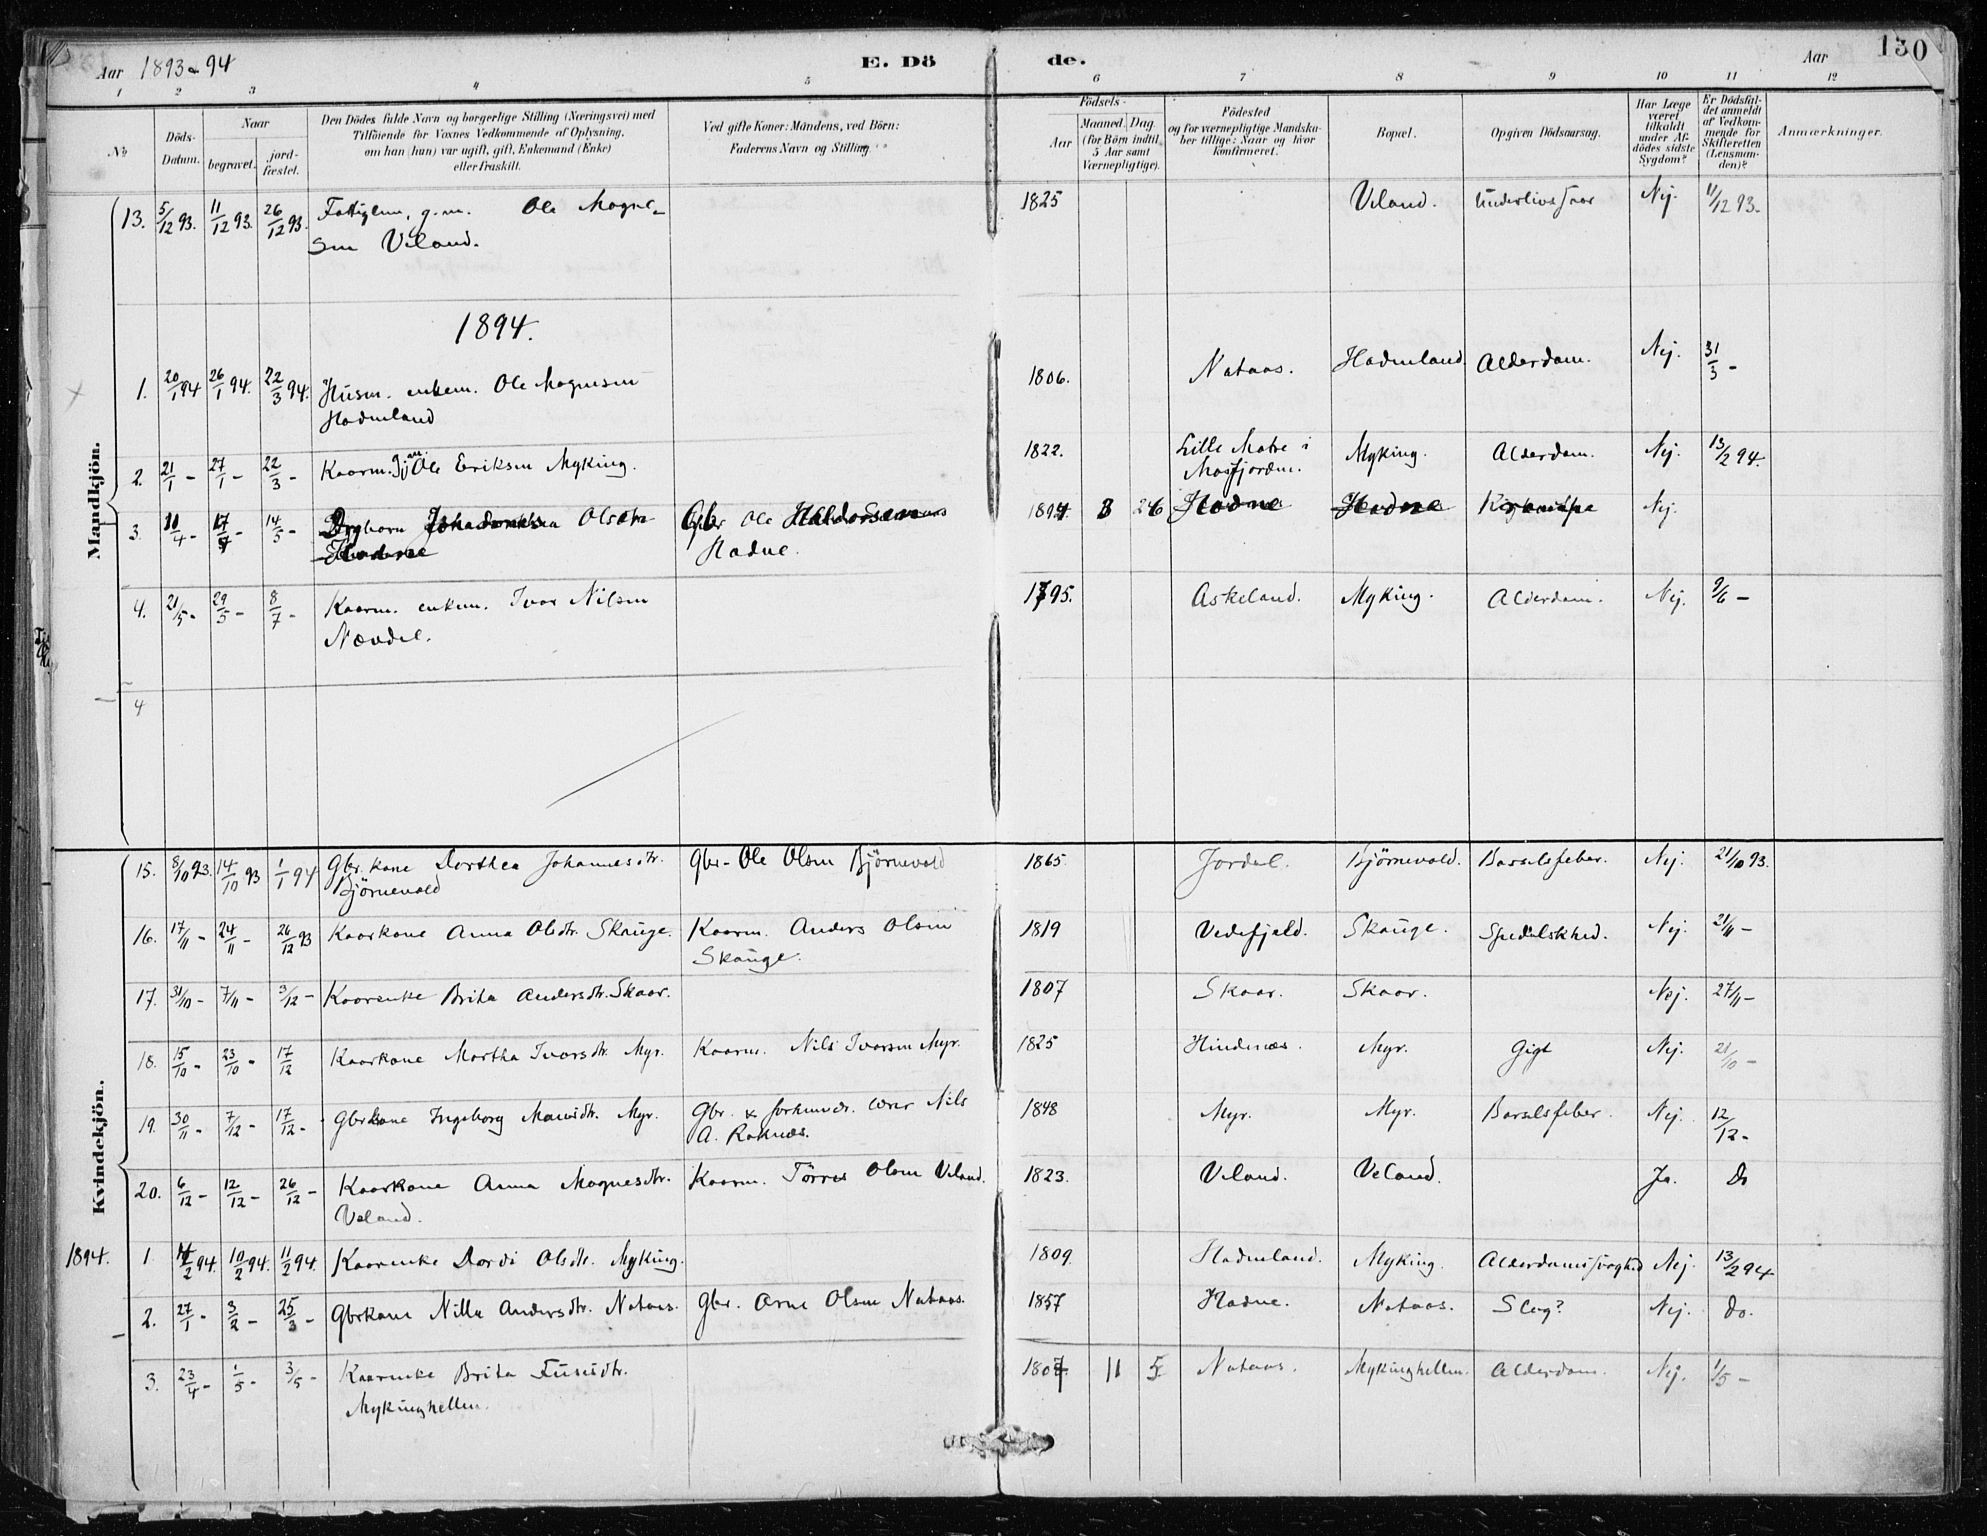 Aar 1893 & 94 E. Dö de. Aar 130
1 2 3 4 5 6 7 8 9 10 11 12
No
Döds-Datum.
Naar
begravet.
jord-fæstet.
Den Dödes fulde Navn og borgerlige Stilling (Næringsvei) med
Tilföiende for Voxnes Vedkommende af Oplysning,
om han (hun) var ugift, gift, Enkemand (Enke)
eller fraskilt.
Ved gifte Koner: Mandens, ved Börn:
Faderens Navn og Stilling.
Födsels-
Aar
Maaned. Dag.
(for Börn indtil 5 Aar samt Værnepligtige).
Födested
og for værnepligtige Mandska-
ber tillige: Naar og hvor
konfirmeret.
Bopæl.
Opgiven Dödsaarsag.
Har Læge været tilkaldt under Af-dödes sidste Sygdom?
Er Dödsfal-det anmeldt af Vedkom-mende for Skifteretten (Lensman-den)?
Anmærkninger.
Mandkjön.
13. 5/12 93. 11/12 93. 26/12 93. Fattiglem, g.m. Ole Magne- 1825 Veland. Underlivssaar Nej. 11/12 93.
sen Veland.
1894.
1. 20/1 94 26/1 94. 22/3 94. Husm. enkem. Ole Magnesen 1806. Nataas. Hadmland. Alderdom. Nej. 31/3 -
Hadmland
2. 21/1 - 27/1 - 22/3 - Kaarm. Gift Ole Eriksen Myking. 1822. Lille Matre i Masfjorden. Myking. Alderdom. Nej. 13/2 94.
3. /4 - 17/4 - 14/5 - Olsen Gbr Ole Haldorsen 1894 3 26 Hodne Hodne Nej.
Hodne Hodne.
4. 21/5 - 29/5 - 8/7 - Kaarm. enkem. Ivar Nilsen 1795. Askeland. Myking. Alderdom. Nej. 9/6 -
Nævdal.
4
Kvindekjön.
15. 8/10 93. 14/10 93 1/1 94 Gbr. kone Dorthea Johannesdtr. Gbr. Ole Olsen Bjørnevold 1865. Jordal. Bjørnevold. Barselsfeber. Nej. 21/10 93.
Bjørnevold
16. 17/11 - 24/11 - 26/12 93 Kaarkone Anna Olsdtr. Skauge. Kaarm. Anders Olsen 1819 Vedefjeld. Skauge. Spedalskhed. Nej. 21/11 -
Skauge.
17. 31/10 - 7/11 - 3/12 - Kaarenke Brita Andersdtr. Skaar. 1807 Skaar. Skaar. Nej. 27/11 -
18. 15/10 - 23/10 - 17/12 Kaarkone Martha Ivarsdtr. Myr. Kaarm. Nils Ivarsen Myr. 1825 Hindenæs. Myr. Gigt Nej. 21/10 -
19. 30/11 - 7/12 - 17/12 - Gbrkone Ingeborg Monsdtr. Myr. Gbr. & forhenv. lærer Nils 1848 Myr. Myr. Barselsfeber. Nej. 12/12 -
A. Roknæs.
20. 6/12 - 12/12 - 26/12 - Kaarkone Anna Magnesdtr. Kaarm. Tørres Olsen Veland. 1823. Veland. Veland. Ja. Do
Veland.
1894. 1. /2 94. 10/2 94. 11/2 94. Kaarenke Dordi Olsdtr. Myking. 1809. Hadmland. Myking. Alderdomssvaghed Nej. 13/2 94
2. 27/1 - 3/2 - 25/3 - Gbrkone Nilla Andersdtr. Nataas. Gbr. Arne Olsen Nataas. 1857 Hodne. Nataas. Slag? Nej. Do.
3. 23/4 - 1/5 - 3/5 - Kaarenke Brita Fusisdtr. 1807 11 5 Nataas. Mykinghellen. Alderdom. Nej. 1/5 -
Mykinghellen.